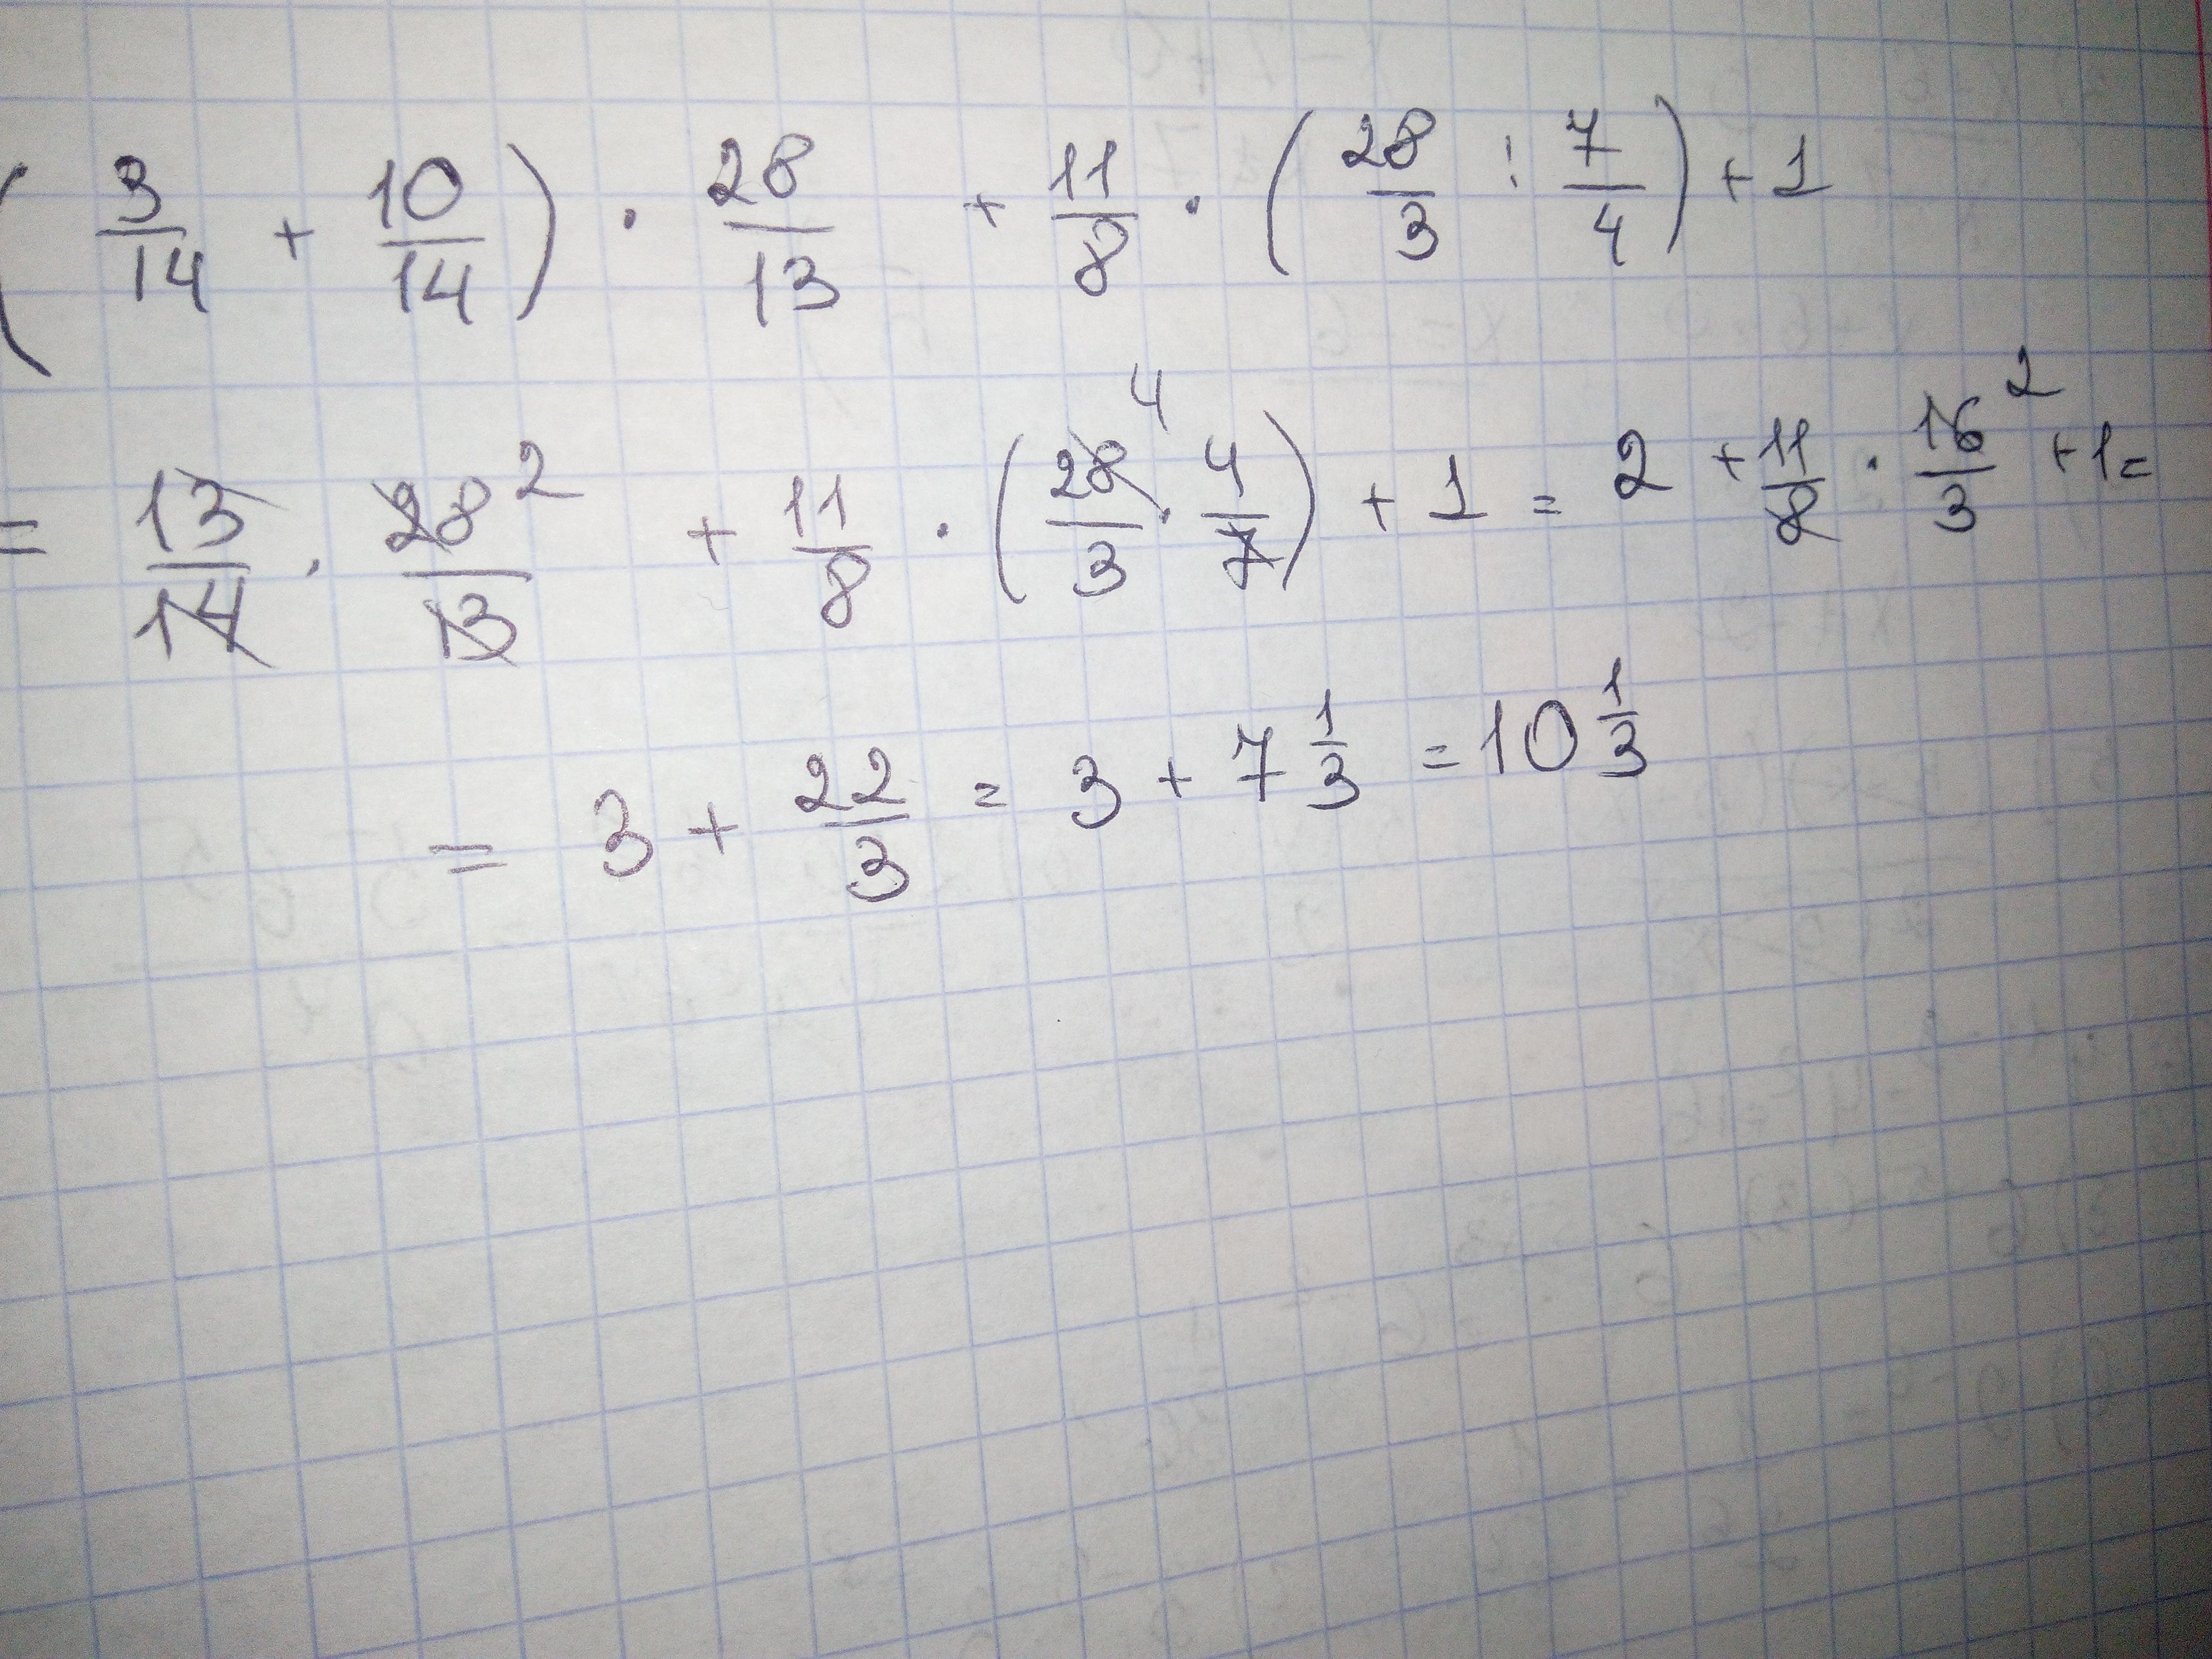 ( 3/14 + 10/14 ) · 28/13 + 11/8 · ( 28/3 : 7/4 ) + 1
= 13/14 · 28/13 2 + 11/8 · ( 28/3 4 · 4/7 ) + 1 = 2 + 11/8 · 16/3 2 + 1 =
= 3 + 22/3 = 3 + 7 1/3 = 10 1/3